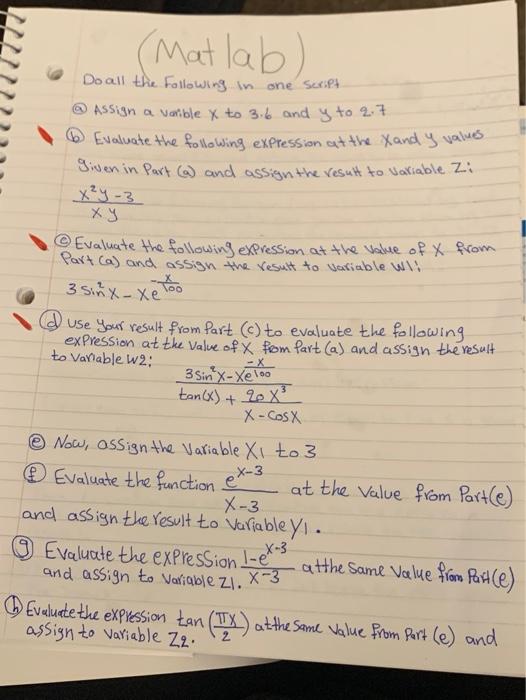 (Matlab)
Do all the Following in one Script
ⓐ Assign a varible X to 3.6 and y to 2.7
ⓑ Evaluate the following expression at the X and y values
given in Part (a) and assign the result to variable Z:
x²y - 3
xy
ⓒ Evaluate the following expression at the value of X from
Part (a) and assign the result to variable W1:
3 sin²x - xe^(-x/100)
ⓓ use your result from part (c) to evaluate the following
expression at the value of X from part (a) and assign the result
to variable W2:
3 sin²x - xe^(-x/100)
tan(x) + 20x³
x - cosx
ⓔ Now, assign the variable X1 to 3
ⓕ Evaluate the function e^(x-3) at the value from Part(e)
x-3
and assign the result to variable y1.
ⓖ Evaluate the expression 1-e^(x-3) at the same value from Part(e)
and assign to variable Z1. x-3
ⓗ Evaluate the expression tan (πx/2) at the same value from Part (e) and
assign to variable Z2.